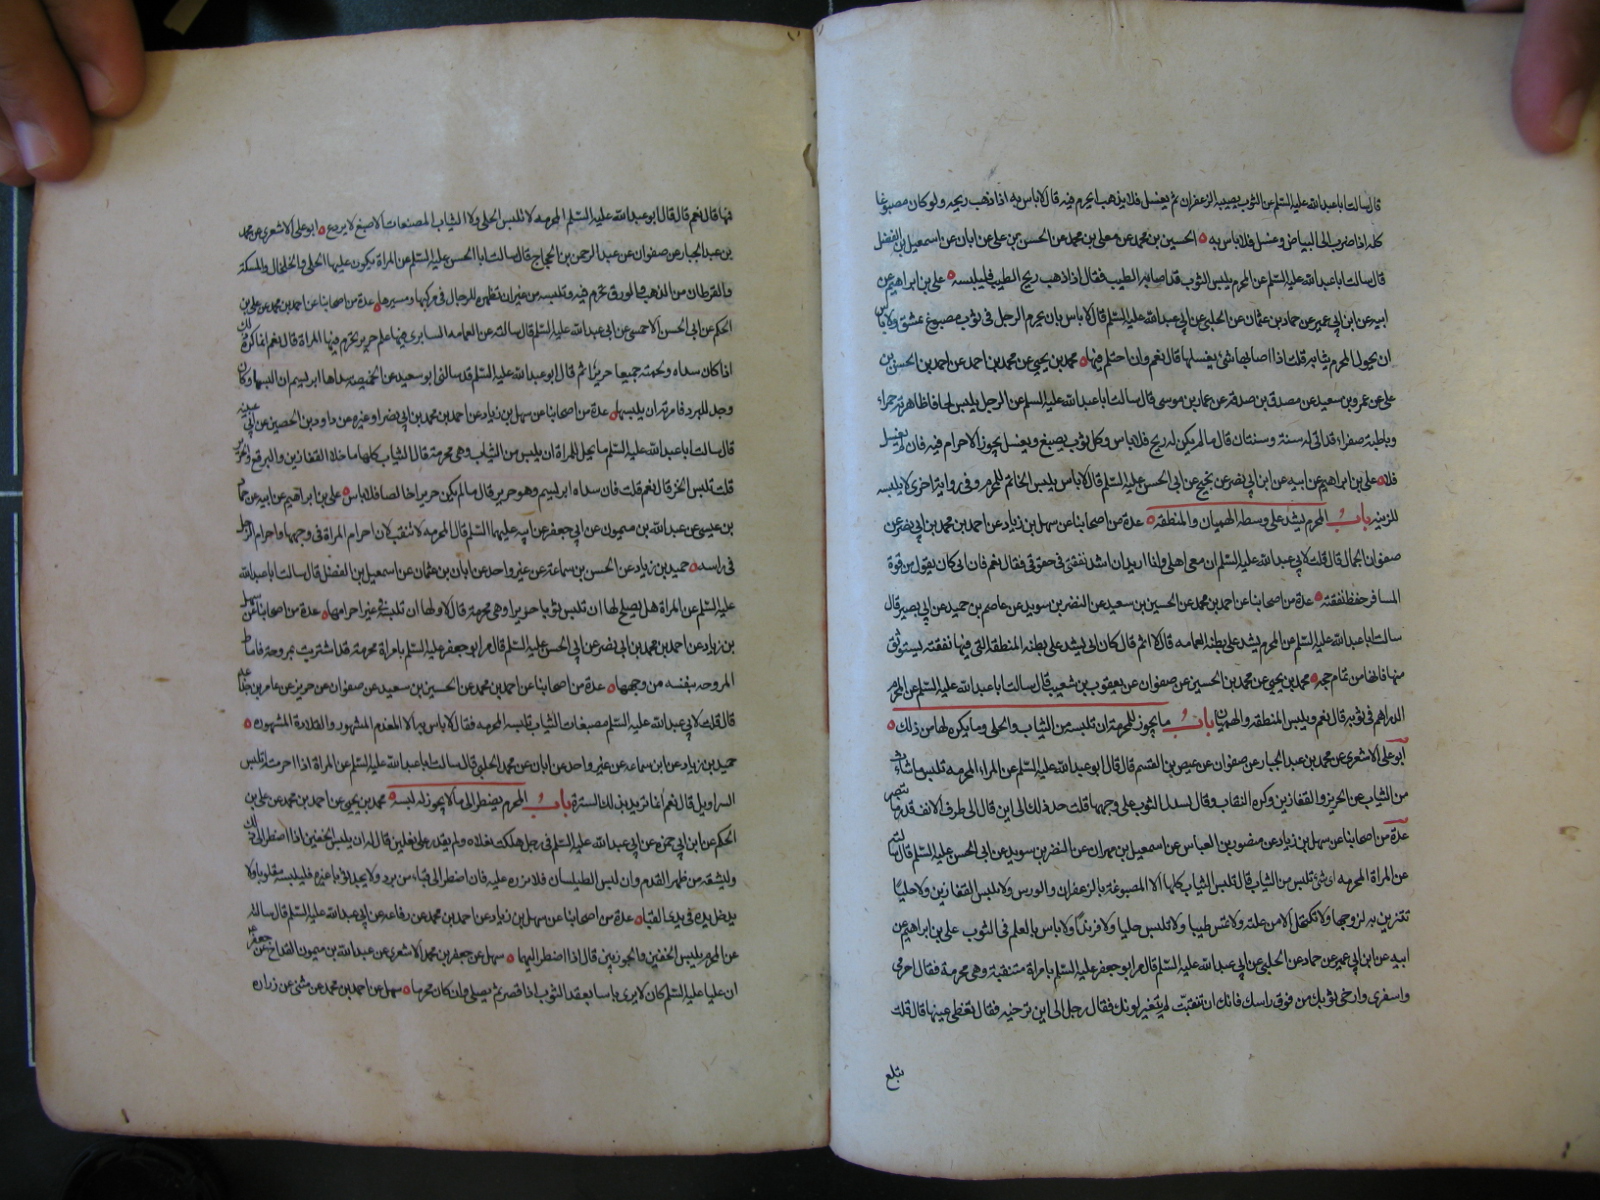 قال سالت ابا عبد الله عليه السلم عن الثوب يصيبه الزعفران ثم يغسل فلا يذهب ايحرم فيه قال لا باس به اذا ذهب ريحه ولو كان مصبوغا
كله اذا ضرب الى البياض وغسل فلا باس به ه الحسين بن محمد عن معلى بن محمد عن الحسن بن على عن ابان عن اسمعيل بن الفضل
قال سالت ابا عبد الله عليه السلم عن المحرم يلبس الثوب قد اصابه الطيب فقال اذا ذهب ريح الطيب فليلبسه ه على بن ابراهيم عن
ابيه عن ابن ابي عمير عن حماد بن عثمان عن الحلبى عن ابي عبد الله عليه السلم قال لا باس بان يحرم الرجل فى ثوب مصبوغ عشق ولا باس
ان يحول المحرم ثيابه قلت اذا اصابها شئ يغسلها قال نعم وان احتلم فيها ه محمد بن يحيى عن محمد بن احمد عن احمد بن الحسن بن
على عن عمرو بن سعيد عن مصدق بن صدقة عن عمار بن موسى قال سالت ابا عبد الله عليه السلم عن الرجل يلبس لحافا ظاهرته حمراء
وباطنة صفراء قد اتى له سنة وسنتان قال ما لم يكن له ريح فلا باس وكل ثوب يصبغ ويغسل يجوز الاحرام فيه فان لم يغسل
فلا ه على بن ابراهيم عن ابيه عن ابن ابي نصر عن نجيح عن ابي الحسن عليه السلم قال لا باس بلبس الخاتم للمحرم وفى رواية اخرى لا يلبسه
للزينة باب المحرم يشد على وسطه الهميان والمنطقه ه عدة من اصحابنا عن سهل بن زياد عن احمد بن محمد بن ابي نصر عن
صفوان الجمال قال قلت لابي عبد الله عليه السلم ان معى اهلى وانا اريد ان اشد نفقتى فى حقوى فقال نعم فان ابى كان يقول من قوة
المسافر حفظ نفقته ه عدة من اصحابنا عن احمد بن محمد عن الحسين بن سعيد عن النضر بن سويد عن عاصم بن حميد عن ابي بصير قال
سالت ابا عبد الله عليه السلم عن المحرم يشد على بطنه العمامه قال لا ثم قال كان ابى يشد على بطنه المنطقة التى فيها نفقته يستوثق
منها فانها من تمام حجه ه محمد بن يحيى عن محمد بن الحسين عن صفوان عن يعقوب بن شعيب قال سالت ابا عبد الله عليه السلم عن المحرم
الدراهم فى ثوبه قال نعم ويلبس المنطقه والهميان باب ما يجوز للمحرمة ان تلبسه من الثياب والحلى وما يكره لها من ذلك ه
ابو على الاشعرى عن محمد بن عبد الجبار عن صفوان عن عيص بن القسم قال قال ابو عبد الله عليه السلم عن المراة المحرمه تلبس ما شاءت
من الثياب عن الحرير والقفازين وكره النقاب وقال تسدل الثوب على وجهها قلت حد ذلك الى اين قال الى طرف الانف قدر ما تبصر
عدة من اصحابنا عن سهل بن زياد عن منصور بن العباس عن اسمعيل بن مهران عن النضر بن سويد عن ابى الحسن عليه السلم قال سالته
عن المراة المحرمه اى شئ تلبس من الثياب قال تلبس الثياب كلها الا المصبوغة بالزعفران والورس ولا تلبس القفازين ولا حليا
تتزين به لزوجها ولا تكتحل الا من علة ولا تمس طيبا ولا تلبس حليا ولا فرندا ولا باس بالعلم فى الثوب على بن ابراهيم عن
ابيه عن ابن ابي عمير عن حماد عن الحلبى عن ابي عبد الله عليه السلم قال مر ابو جعفر عليه السلم بامراة متنقبة وهى محرمة فقال احرمى
واسفرى وارخى ثوبك من فوق راسك فانك ان تنقبت لم يتغير لونك فقال رجل الى اين ترخيه فقال تغطى عينها قال قلت
بلغ
فيها قال نعم قال قال ابو عبد الله عليه السلم المحرمه لا تلبس الحلى ولا الثياب المصبغات الا صبغ لا يردع ه ابو على الاشعرى عن محمد
بن عبد الجبار عن صفوان عن عبد الرحمن بن الحجاج قال سالت ابا الحسن عليه السلم عن المراة يكون عليها الحلى والخلخال والمسكة
والقرطان من الذهب والورق تحرم فيه وتلبسه من غير ان تظهره للرجال فى مركبها ومسيرها ه عدة من اصحابنا عن احمد بن محمد عن على بن
الحكم عن ابى الحسن الاحمسى عن ابى عبد الله عليه السلم قال سالته عن العمامه السابرى فيها علم حرير تحرم فيها المراة قال نعم انما كره ذلك
اذا كان سداه ولحمته جميعا حريرا ثم قال ابو عبد الله عليه السلم قد سالنى ابو سعيد عن الخميصه سداها ابريسم ان البسها وكان
وجد البرد فامرته ان يلبسها ه عدة من اصحابنا عن سهل بن زياد عن احمد بن محمد بن ابي نصر او غيره عن داود بن الحصين عن ابي عيينه
قال سالت ابا عبد الله عليه السلم ما يحل للمراة ان يلبس من الثياب وهى محرمة قال الثياب كلها ما خلا القفازين والبرقع والحرير
قلت تلبس الخز قال نعم قلت فان سداه ابريسم وهو حرير قال ما لم يكن حريرا خالصا فلا باس ه على بن ابراهيم عن ابيه عن حماد
بن عيسى عن عبد الله بن ميمون عن ابي جعفر عن ابيه عليهما السلم قال المحرمه لا تتنقب لان احرام المراة فى وجهها واحرام الرجل
فى راسه ه حميد بن زياد عن الحسن بن سماعة عن غير واحد عن ابان بن عثمان عن اسمعيل بن الفضل قال سالت ابا عبد الله
عليه السلم عن المراة هل يصلح لها ان تلبس ثوبا حريرا وهى محرمة قال لا ولها ان تلبسه فى غير احرامها ه عدة من اصحابنا عن سهل
بن زياد عن احمد بن محمد بن ابي نصر عن ابي الحسن عليه السلم قال مر ابو جعفر عليه السلم بامراة محرمة قد استترت بمروحة فاماط
المروحه بنفسه من وجهها ه عدة من اصحابنا عن احمد بن محمد عن الحسين بن سعيد عن صفوان عن حريز عن عامر بن جذاعة
قال قلت لابي عبد الله عليه السلم مصبغات الثياب تلبسه المحرمه فقال لا باس به الا المفدم المشهور والقلادة المشهوره ه
حميد بن زياد عن ابن سماعه عن غير واحد عن ابان عن محمد الحلبي قال سالت ابا عبد الله عليه السلم عن المراة اذا احرمت اتلبس
السراويل قال نعم انما تريد بذلك السترة باب المحرم يضطر الى ما لا يجوز له لبسه ه محمد بن يحيى عن احمد بن محمد عن على بن
الحكم عن ابن ابي حمزه عن ابي عبد الله عليه السلم فى رجل هلكت نعلاه ولم يقدر على نعلين قال له ان يلبس الخفين اذا اضطر الى ذلك
وليشقه من ظهر القدم وان لبس الطيلسان فلا يزره عليه فان اضطر الى قباء من برد ولا يجد ثوبا غيره فليلبسه مقلوبا ولا
يدخل يده فى يدى القبا ه عدة من اصحابنا عن سهل بن زياد عن احمد بن محمد عن رفاعه عن ابي عبد الله عليه السلم قال سالته
عن المحرم يلبس الخفين والجوربين قال اذا اضطر اليهما ه سهل عن جعفر بن محمد الاشعرى عن عبد الله بن ميمون القداح عن جعفر
ان عليا عليه السلم كان لا يرى باسا بعقد الثوب اذا قصر ثم يصلى وان كان محرما ه سهل عن احمد بن محمد عن مثنى عن زراره